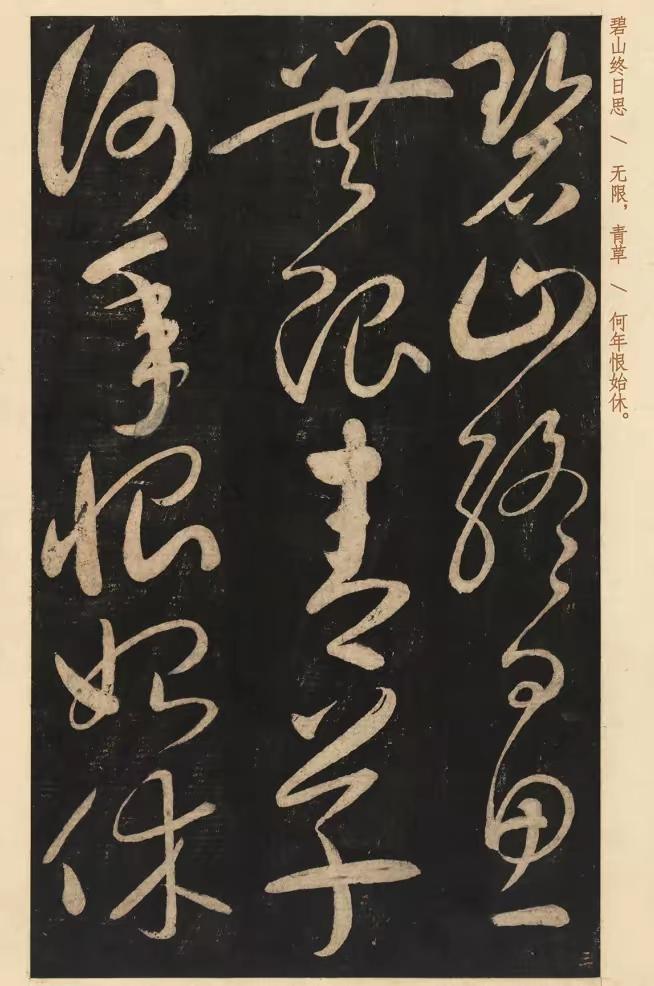 碧山终日思 \ 无限， 青草 \ 何年恨始休。
碧山終日思
無限青草
何年恨始休
三